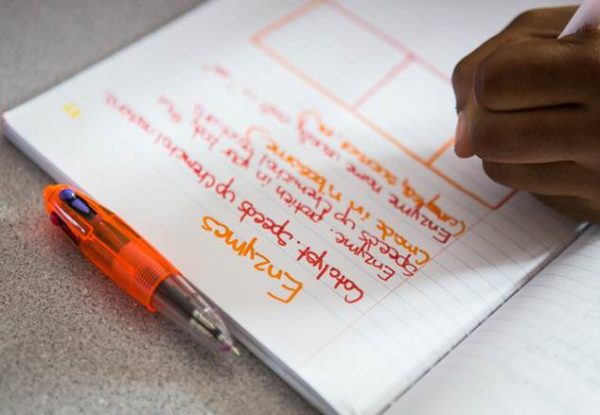 Enzymes
Catalyst. Speeds up chemical reactions
Enzyme. protein in body that
Speeds up chemical reactions
(made in
Enzyme name usually ends in